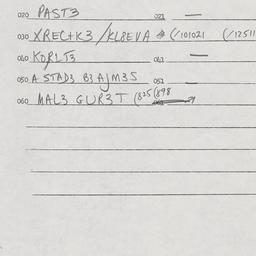 020 PAST3 021 —
030 XREC+K3 / KL8EVA (/101021 (/12511
040 KORLT3 041 —
050 A STAD3 B3AJM3S 051 —
060 MAL3 GUR3T (825 (898